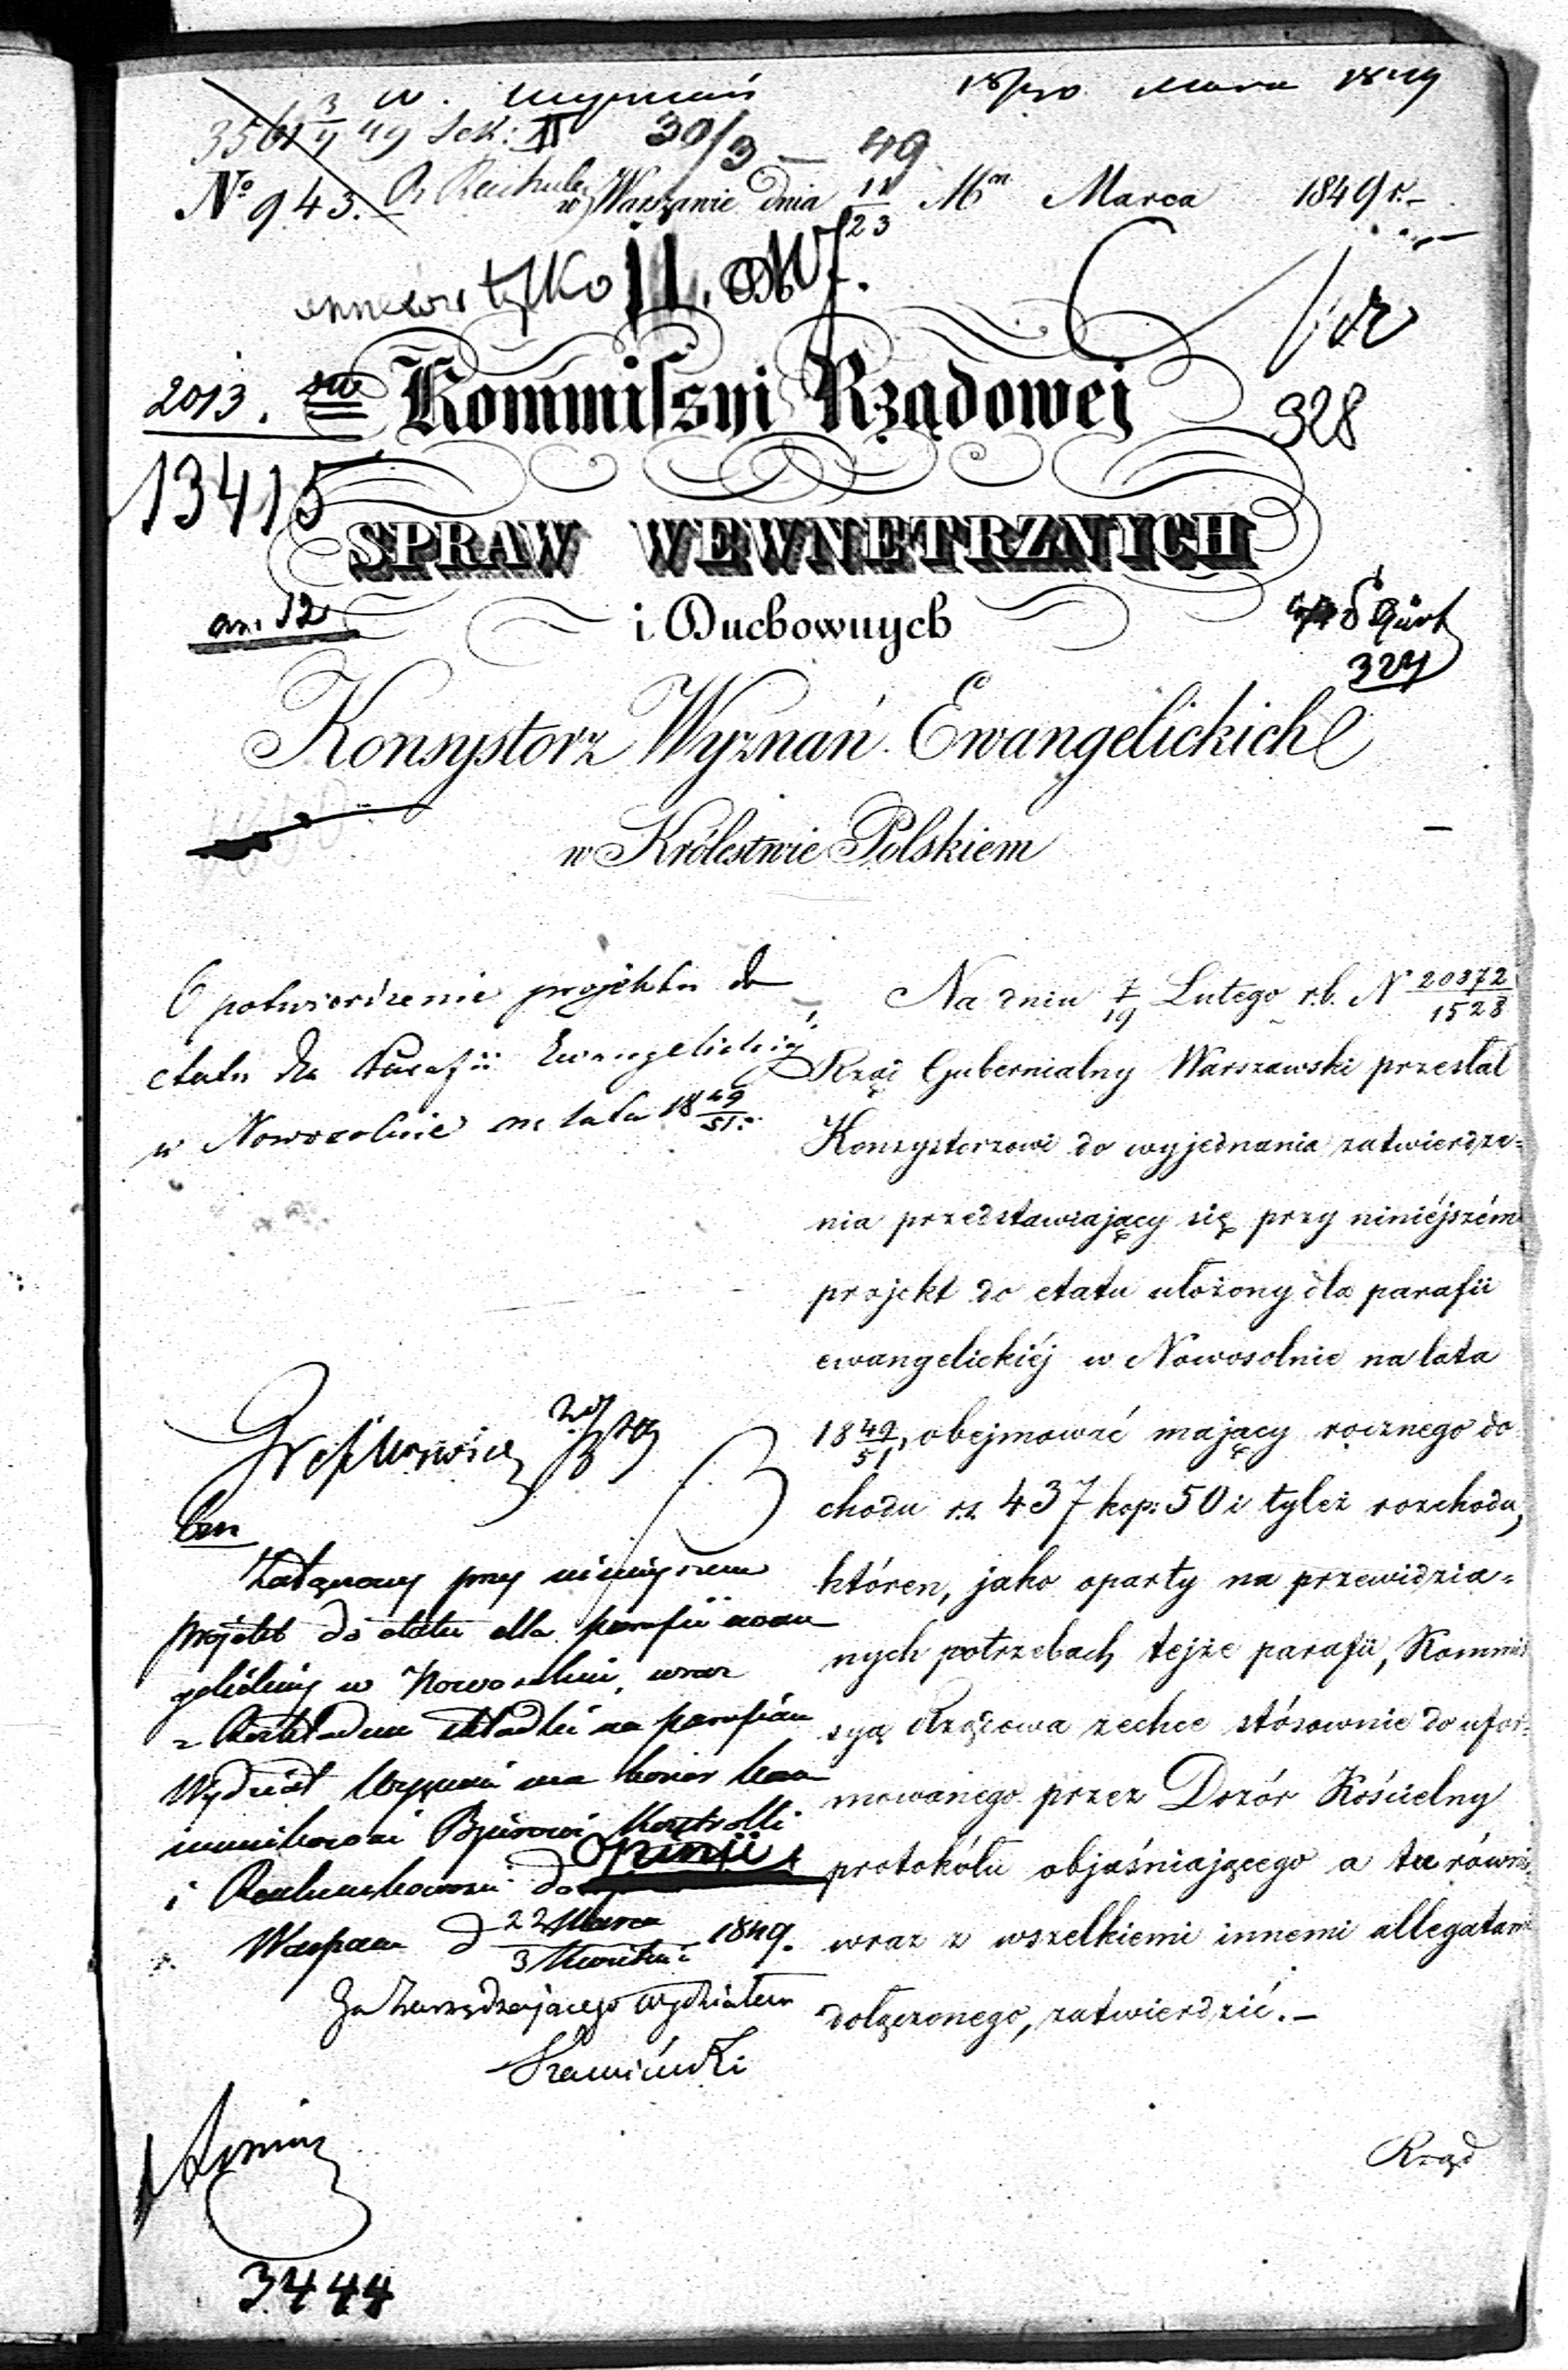 18/30 Marca 1849
W. Wyznań
3561 3/4 49 Sek: II 30/3 — 49
No 943. w Warszawie dnia 11/23 Mca Marca 1849 r.
tylko II.
2013.
Kommissyi Rządowej
328
13415
SPRAW WEWNĘTRZNYCH
i Duchownych
327
Konsystorz Wyznań Ewangelickich
w Królestwie Polskiem
O potwierdzenie projektu do
etatu dla Parafii Ewangelickiej
w Nowosolnie na lata 18 49/51.
Na dniu 7/19 Lutego r.b. N 20372/1528
Rząd Gubernialny Warszawski przesłał
Konsystorzowi do wyjednania zatwierdze=
nia przedstawiający się przy niniéjszém
projekt do etatu ułożony dla parafii
ewangelickiéj w Nowosolnie na lata
18 49/51, obejmować mający rocznego do
chodu r.s. 437 kop: 50 i tyleż rozchodu,
któren, jako oparty na przewidzia=
nych potrzebach tejże parafii, Kommis
syą Rządowa zechce stósownie do ufor=
mowanego przez Dozór Kościelny
protokółu objaśniającego a tu równie
wraz z wszelkiemi innemi allegatami
dołączonego, zatwierdzić.—
Rząd
Załączony przy niniejszem
projekt do etatu dla parafii ewan
gelickiej w Nowosolnie, wraz
z Rozkładem składki na parafian
Wydział Wyznań ma honor kom
munikować Biórowi Kontrolli
i Rachunkowości do opinii
Warszawa d 22 Marca/3 Kwietnia 1849.
Za Zarządzającego Wydziałem
3444